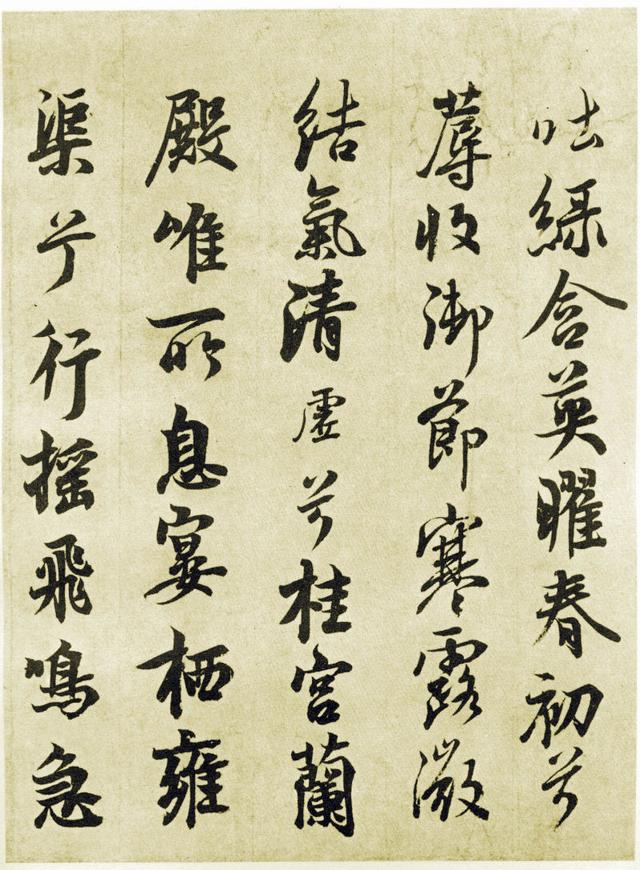 吐緑含英曜春初兮
蓐收御節寒露微
結氣清虛兮桂宮蘭
殿唯所息宴栖雍
渠兮行摇飛鳴急